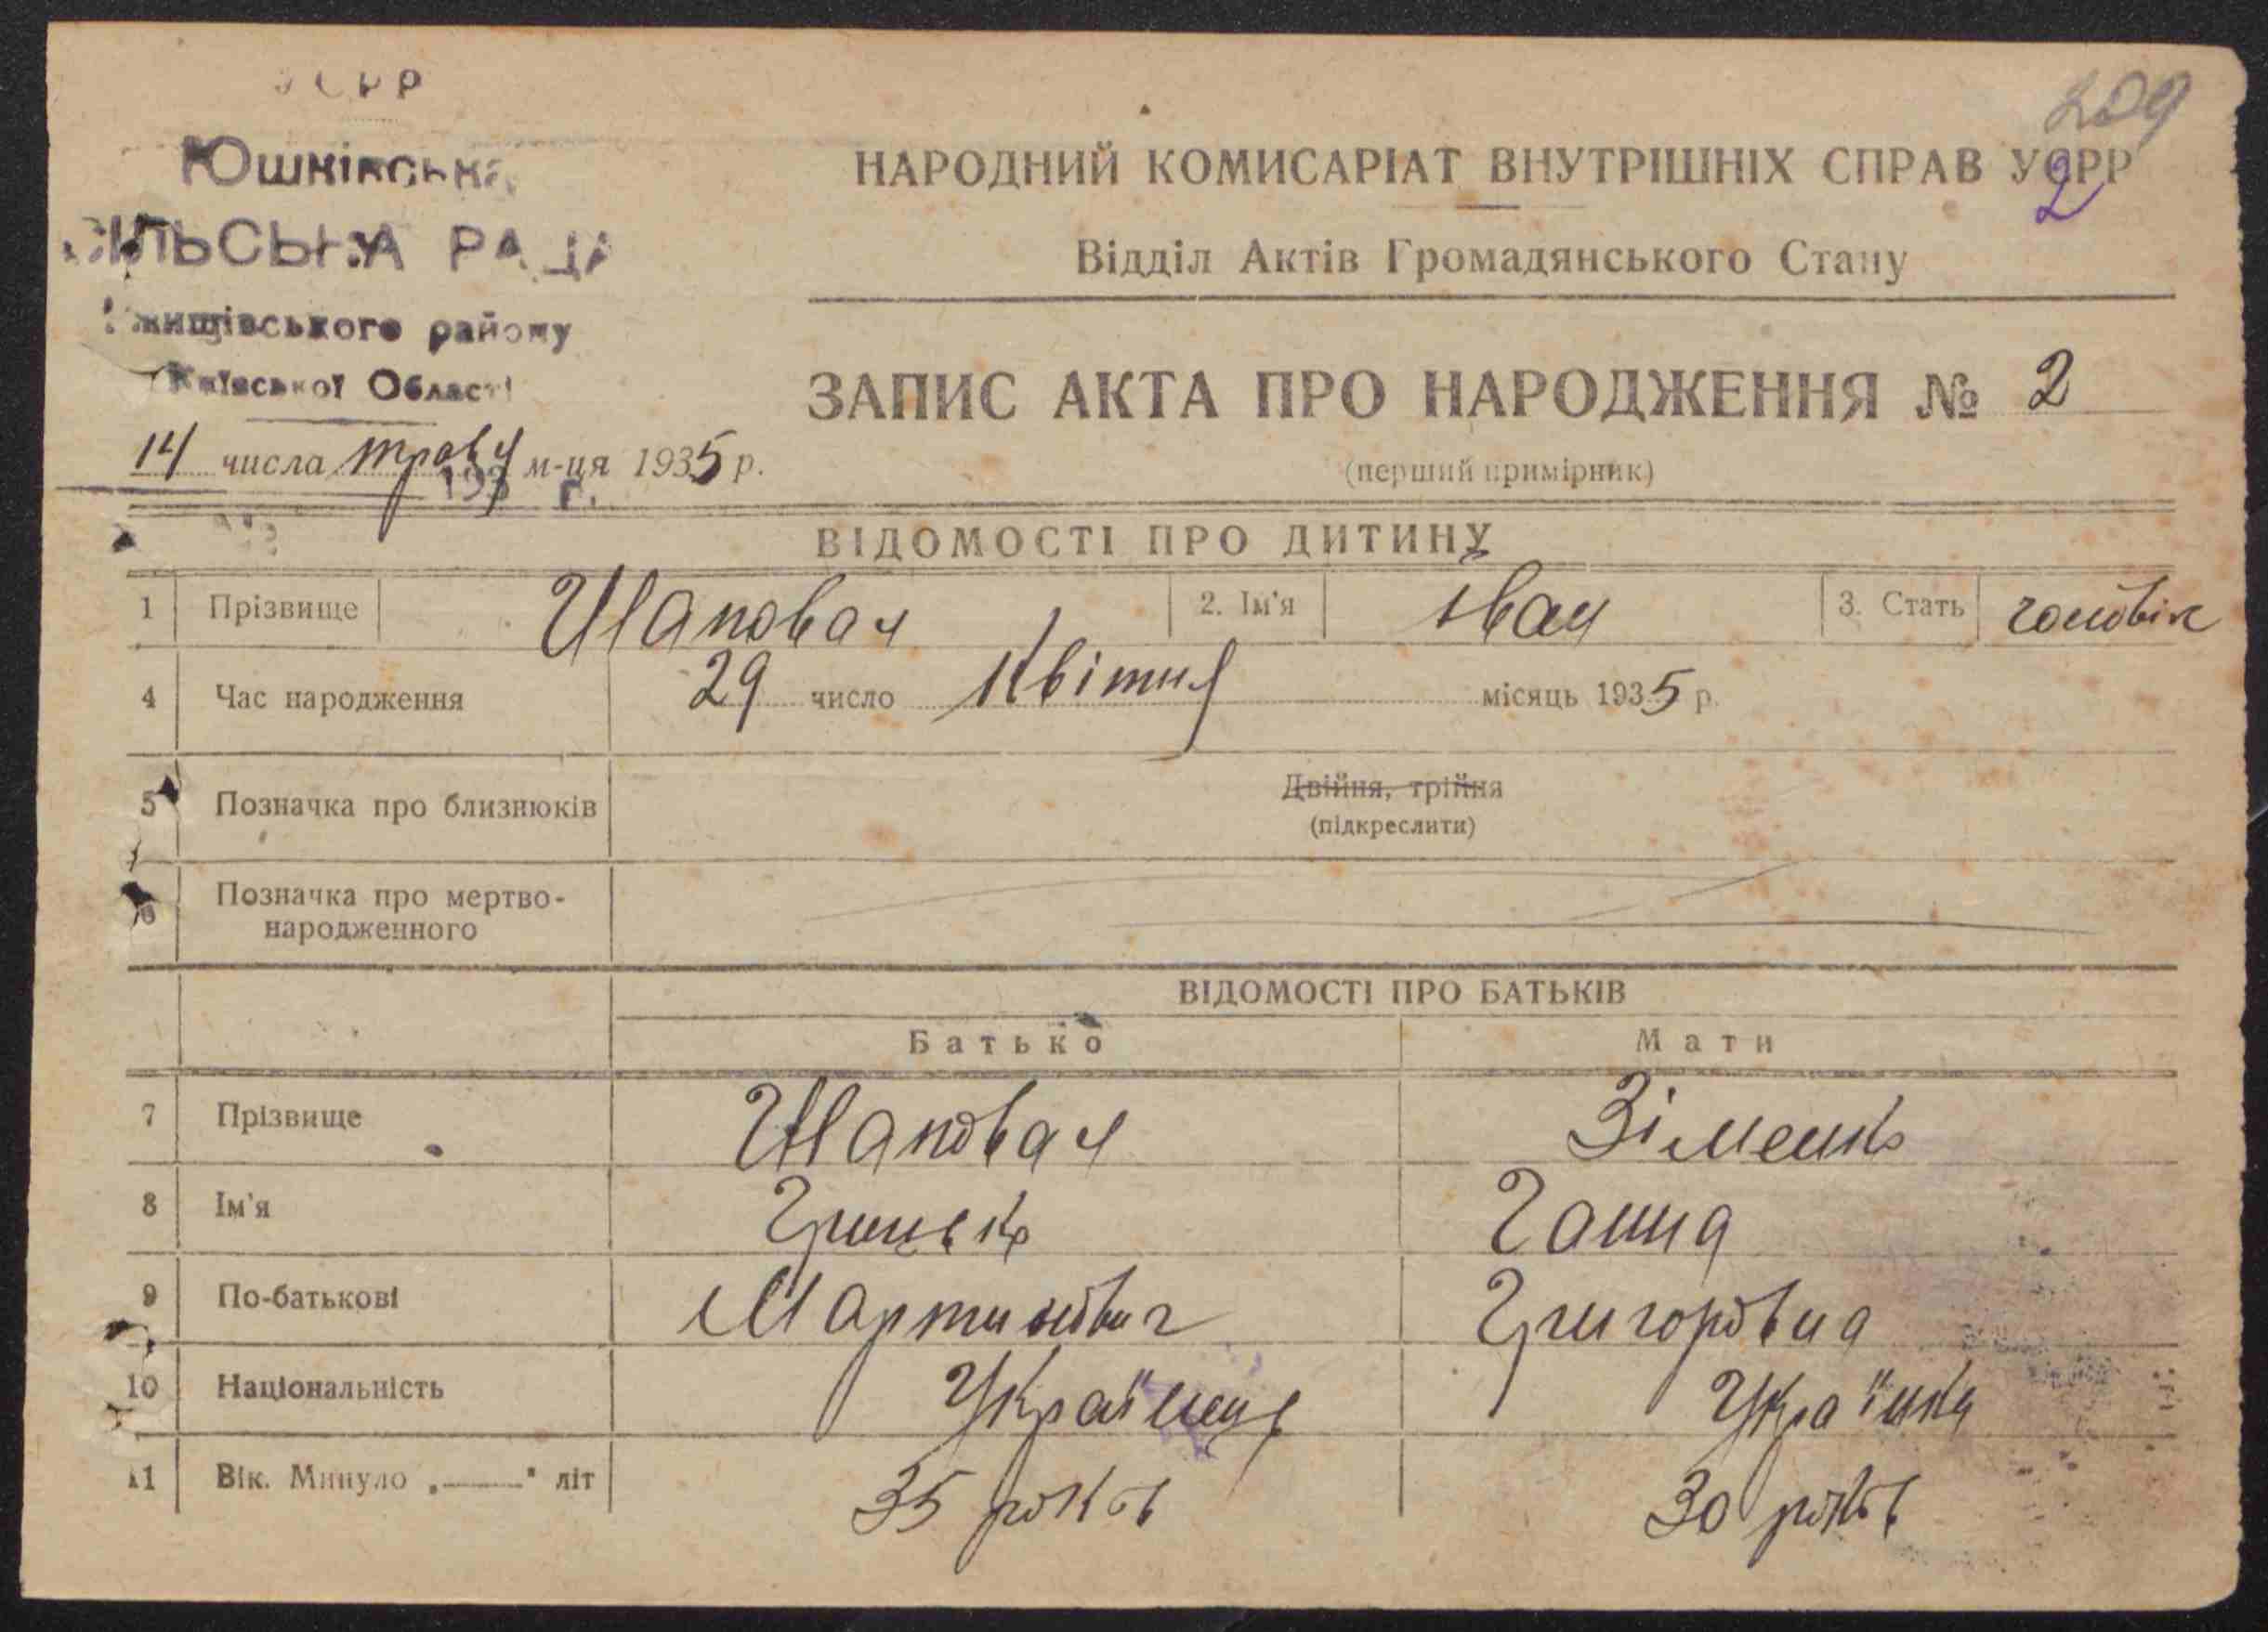 УСРР
209
Юшківська
СІЛЬСЬКА РАДА
Ржищівського району
Київської Області
НАРОДНИЙ КОМИСАРІАТ ВНУТРІШНІХ СПРАВ УСРР
2
Відділ Актів Громадянського Стану
ЗАПИС АКТА ПРО НАРОДЖЕННЯ № 2
(перший примірник)
14 числа травня м-ця 1935 р.
193 г.
ВІДОМОСТІ ПРО ДИТИНУ
1 Прізвище Шаповал 2. Ім'я Іван 3. Стать чоловік
4 Час народження 29 число Квітня місяць 1935 р.
5 Позначка про близнюків Двійня, трійня
(підкреслити)
6 Позначка про мертво-
народженного
ВІДОМОСТІ ПРО БАТЬКІВ
Батько Мати
7 Прізвище Шаповал Зіменко
8 Ім'я Грицько Ганна
9 По-батькові Мартинович Григоровна
10 Національність Українець Українка
11 Вік. Минуло „——" літ 35 років 30 років